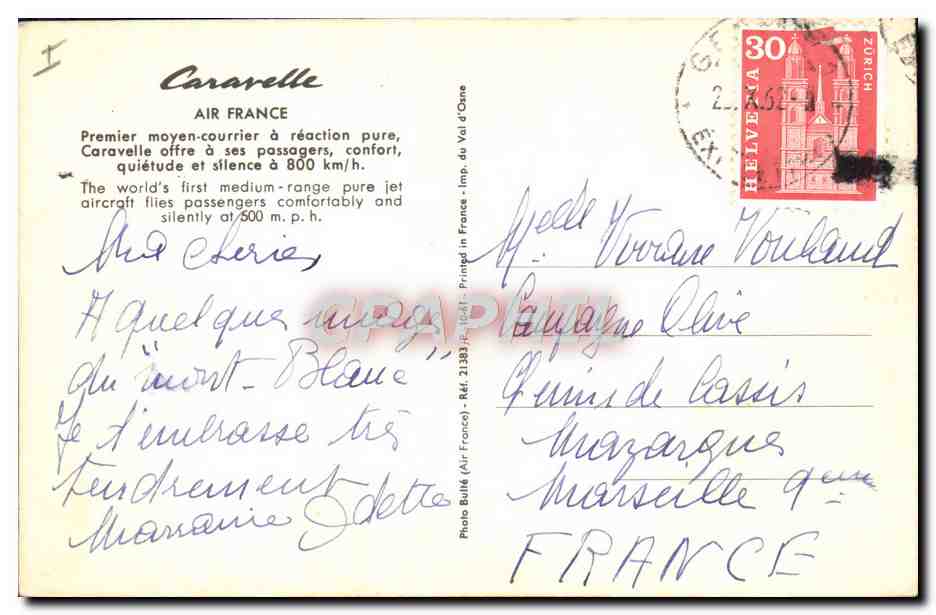 Caravelle
AIR FRANCE
Premier moyen-courrier à réaction pure,
Caravelle offre à ses passagers, confort,
quiétude et silence à 800 km/h.
The world's first medium-range pure jet
aircraft flies passengers comfortably and
silently at 500 m. p. h.
Ma cherie
A quelques
du "Mont-Blanc"
Je t'embrasse très
tendrement
Marraine Odette
Photo Bulté (Air France) - Réf. 21383/R. 10-61 - Printed in France - Imp. du Val d'Osne
HELVETIA
30
ZÜRICH
Melle Viviane
Campagne Olive
Chemin de Cassis
Mazargues
Marseille 9eme
FRANCE
CPAPHIL